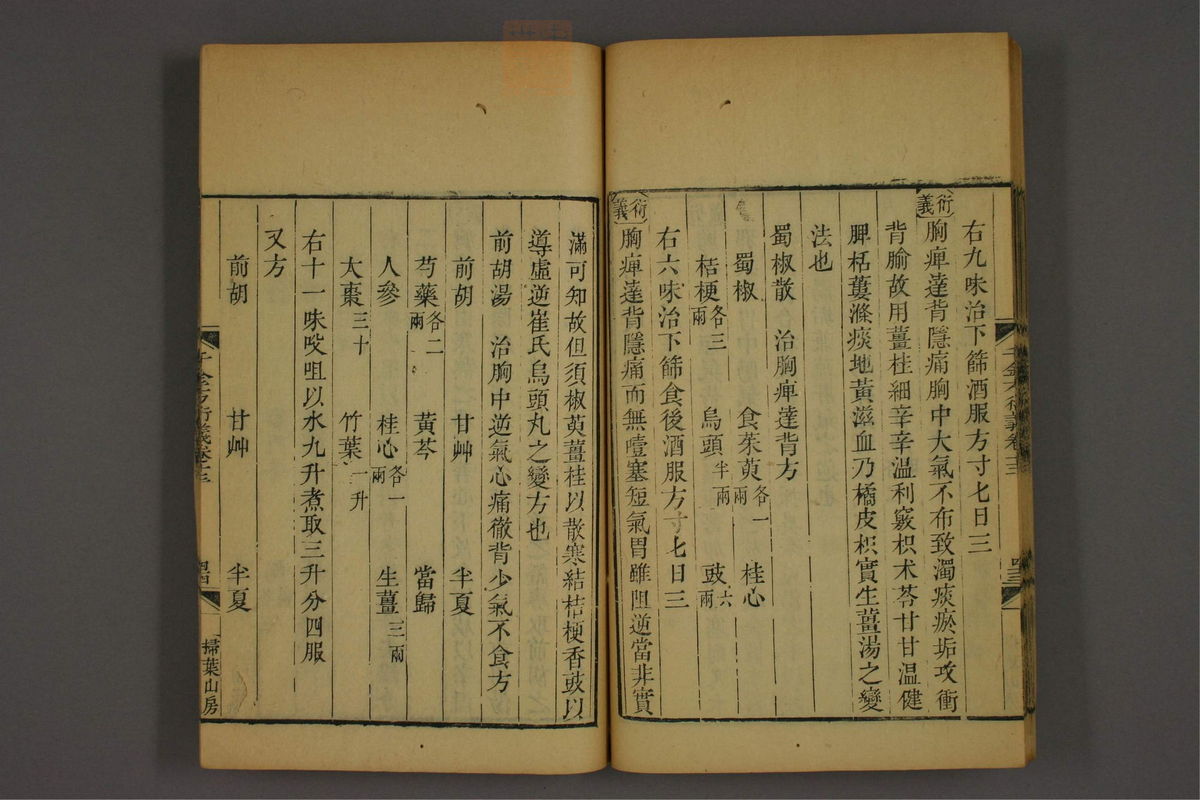 右九味治下篩酒服方寸七日三
衍義
胸痺達背隱痛胸中大氣不布致濁痰瘀垢攻衝
背腧故用薑桂細辛辛温利竅枳术苓甘甘温健
脾栝蔞滌痰地黃滋血乃橘皮枳實生薑湯之變
法也
蜀椒散　治胸痺達背方
蜀椒　食茱萸各一兩　桂心
桔梗各三兩　烏頭半兩　豉六兩
右六味治下篩食後酒服方寸七日三
衍義
胸痺達背隱痛而無噎塞短氣胃雖阻逆當非實
滿可知故但須椒萸薑桂以散寒結桔梗香豉以
導虛逆崔氏烏頭丸之變方也
前胡湯　治胸中逆氣心痛徹背少氣不食方
前胡　甘艸　半夏
芍藥各二兩　黃芩　當歸
人參　桂心各一兩　生薑三兩
大棗三十　竹葉一升
右十一味㕮咀以水九升煮取三升分四服
又方
前胡　甘艸　半夏
千金方衍義卷十三
掃葉山房